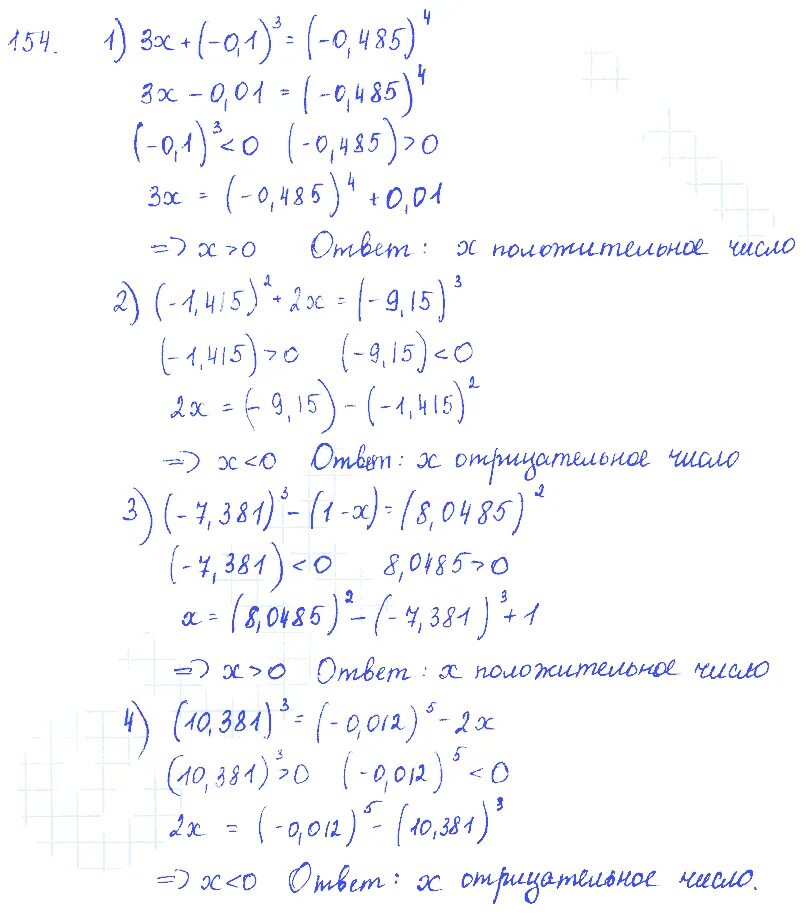 154. 1) 3x + (-0,1)³ = (-0,485)⁴
3x - 0,01 = (-0,485)⁴
(-0,1)³ < 0 (-0,485) > 0
3x = (-0,485)⁴ + 0,01
=> x > 0 Ответ: x положительное число
2) (-1,415)² + 2x = (-9,15)³
(-1,415) > 0 (-9,15) < 0
2x = (-9,15) - (-1,415)²
=> x < 0 Ответ: x отрицательное число
3) (-7,381)³ - (1-x) = (8,0485)²
(-7,381) < 0 8,0485 > 0
x = (8,0485)² - (-7,381)³ + 1
=> x > 0 Ответ: x положительное число
4) (10,381)³ = (-0,012)⁵ - 2x
(10,381)³ > 0 (-0,012)⁵ < 0
2x = (-0,012)⁵ - (10,381)³
=> x < 0 Ответ: x отрицательное число.